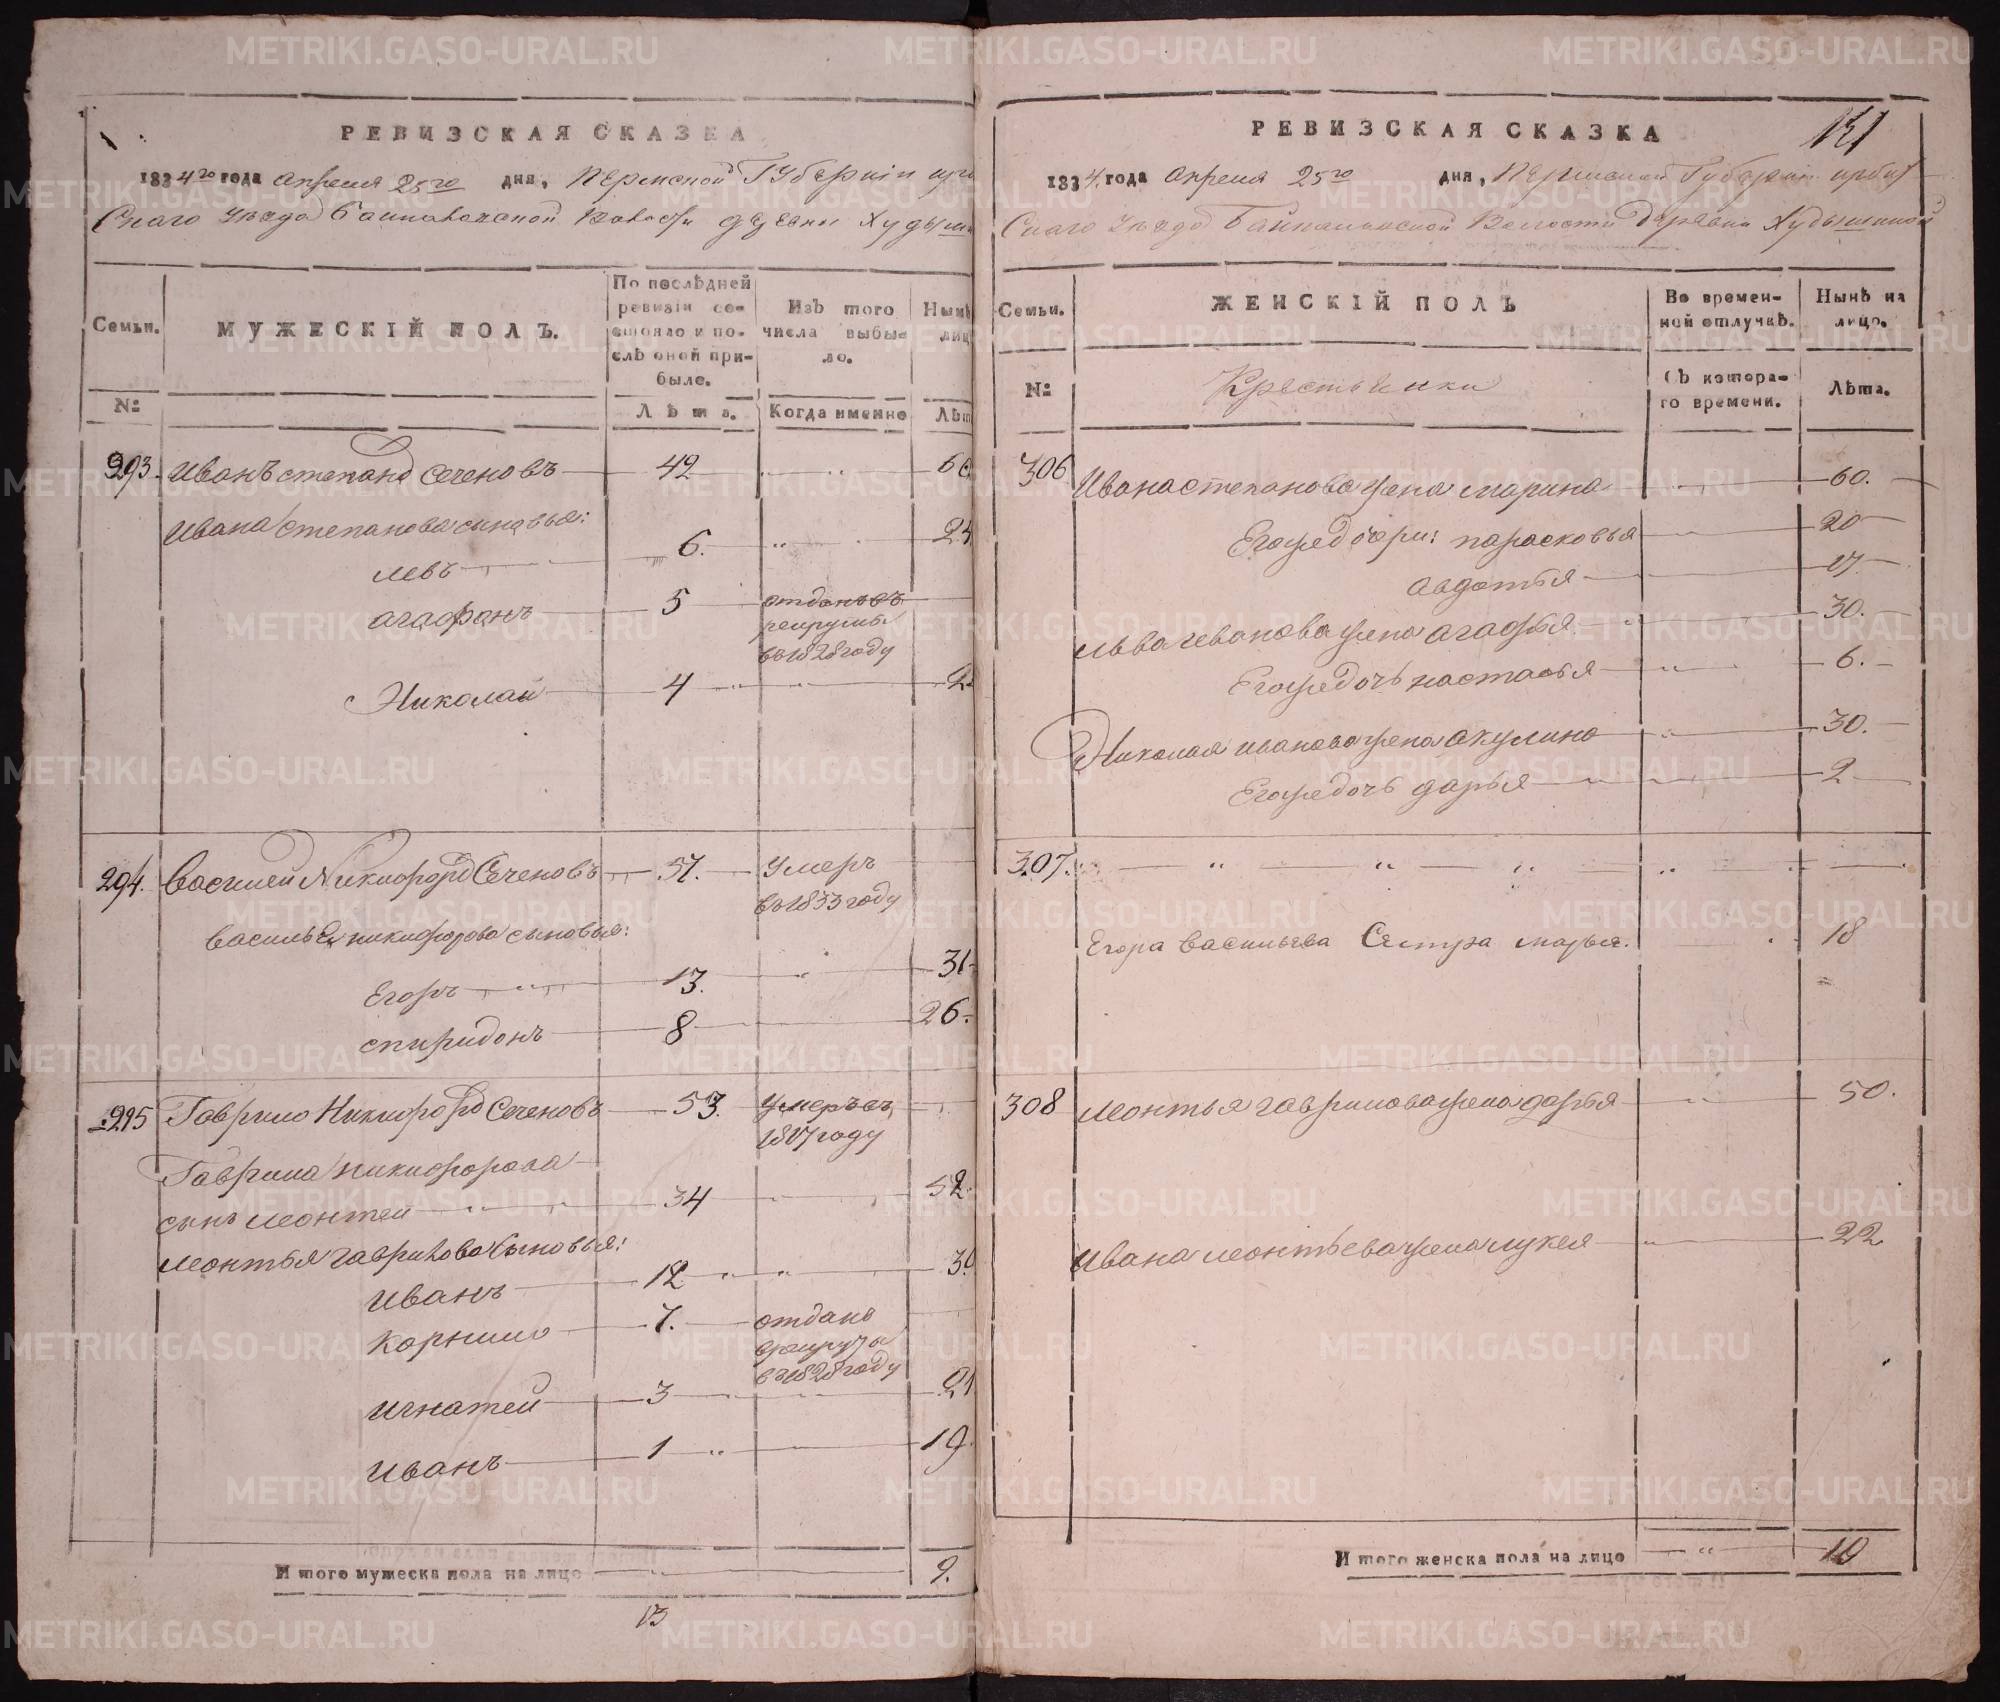 РЕВИЗСКАЯ СКАЗКА
1834го года Апреля 25го дня, Пермской Губернiи ирб
Скаго Уезда Волости деревни Худыш
Семьи.
МУЖЕСКIЙ ПОЛЪ.
По послѣдней ревизiи состояло и послѣ оной прибыло.
Изъ того числа выбыло.
Нынѣ лиц
№
Лѣта.
Когда именно
Лѣт
293. Иванъ степанов Сеченовъ 42 60
Ивана степанова сыновья:
левъ 6. 24
агафонъ 5 отданъ въ
рекруты
въ 1828 году
Николай 4 2
294. Василей Никифоров Сеченовъ 51. Умеръ
въ 1833 году
Василья никифорова сыновья:
Егоръ 13. 31
спиридонъ 8 26.
295 Гаврило Никифоров Сеченовъ 53. Умеръ въ
1817 году
Гаврила никифорова
сынъ леонтей 34 52.
леонтья гаврилова Сыновья:
иванъ 12 30
корнило 7. отданъ
в рекруты
въ 1828 году
игнатей 3 21
иванъ 1 19.
Итого мужеска пола на лицо 9.
13
131
РЕВИЗСКАЯ СКАЗКА
1834. года Апреля 25го дня, Пермской Губернiи ирбит
Скаго Уезда Волости Деревни Худышиной
Семьи.
ЖЕНСКIЙ ПОЛЪ
Во временной отлучкѣ.
Нынѣ на лицо.
№
Крестьянки
Съ котораго времени.
Лѣта.
306 Ивана степанова жена марина 60.
Егоже дочери: парасковья 20
авдотья 17.
льва иванова жена агафья 30.
Егоже дочь настасья 6.
Николая иванова жена акулина 30.
Егоже дочь дарья 2
307.
Егора васильева Сестра марья. 18
308 леонтья гаврилова жена дарья 50.
Ивана леонтьева жена лукея 22
Итого женска пола на лицо 10
METRIKI.GASO-URAL.RU